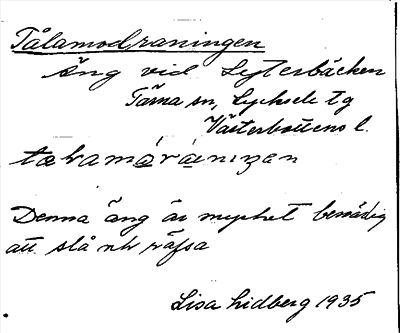 Tålamodraningen
Äng vid Lyterbäcken
Tärna sn, Lycksele tg
Västerbottens l.
Denna äng är mycket besvärlig
att slå och räfsa
Lisa Lidberg 1935